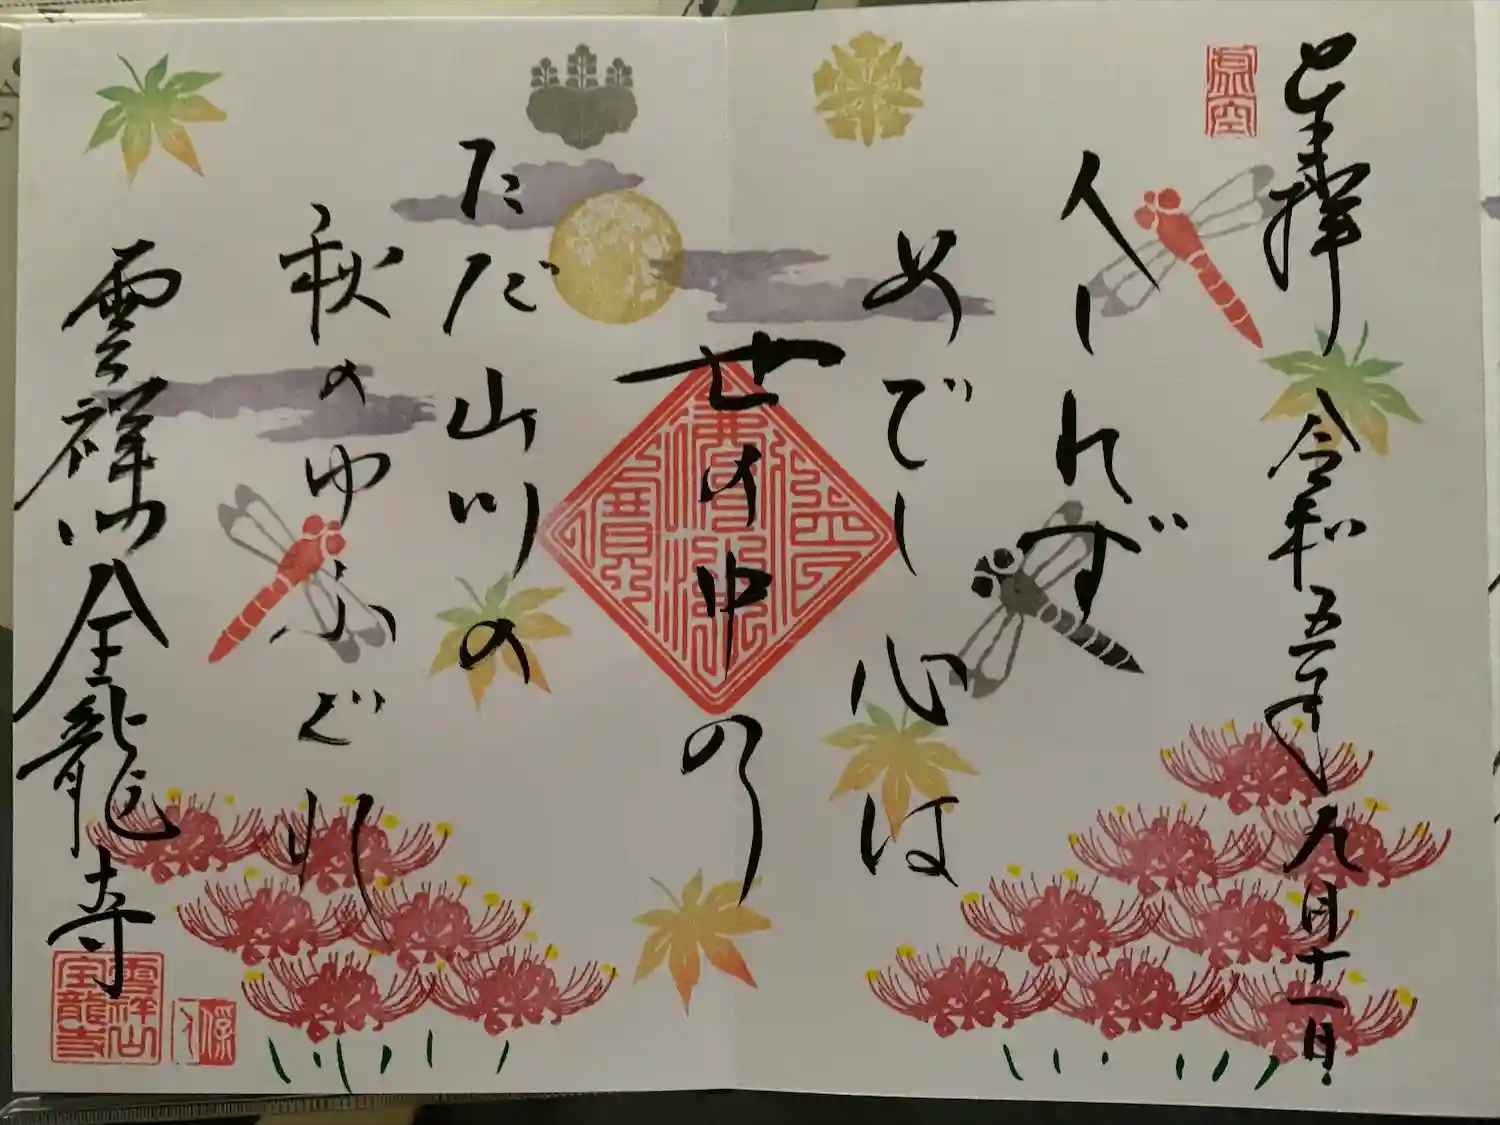 奉拝 令和五年九月十一日
人しれず
めでし心は
世の中の
ただ山川の
秋のゆふぐれ
雲祥山全龍寺
佛法僧寶